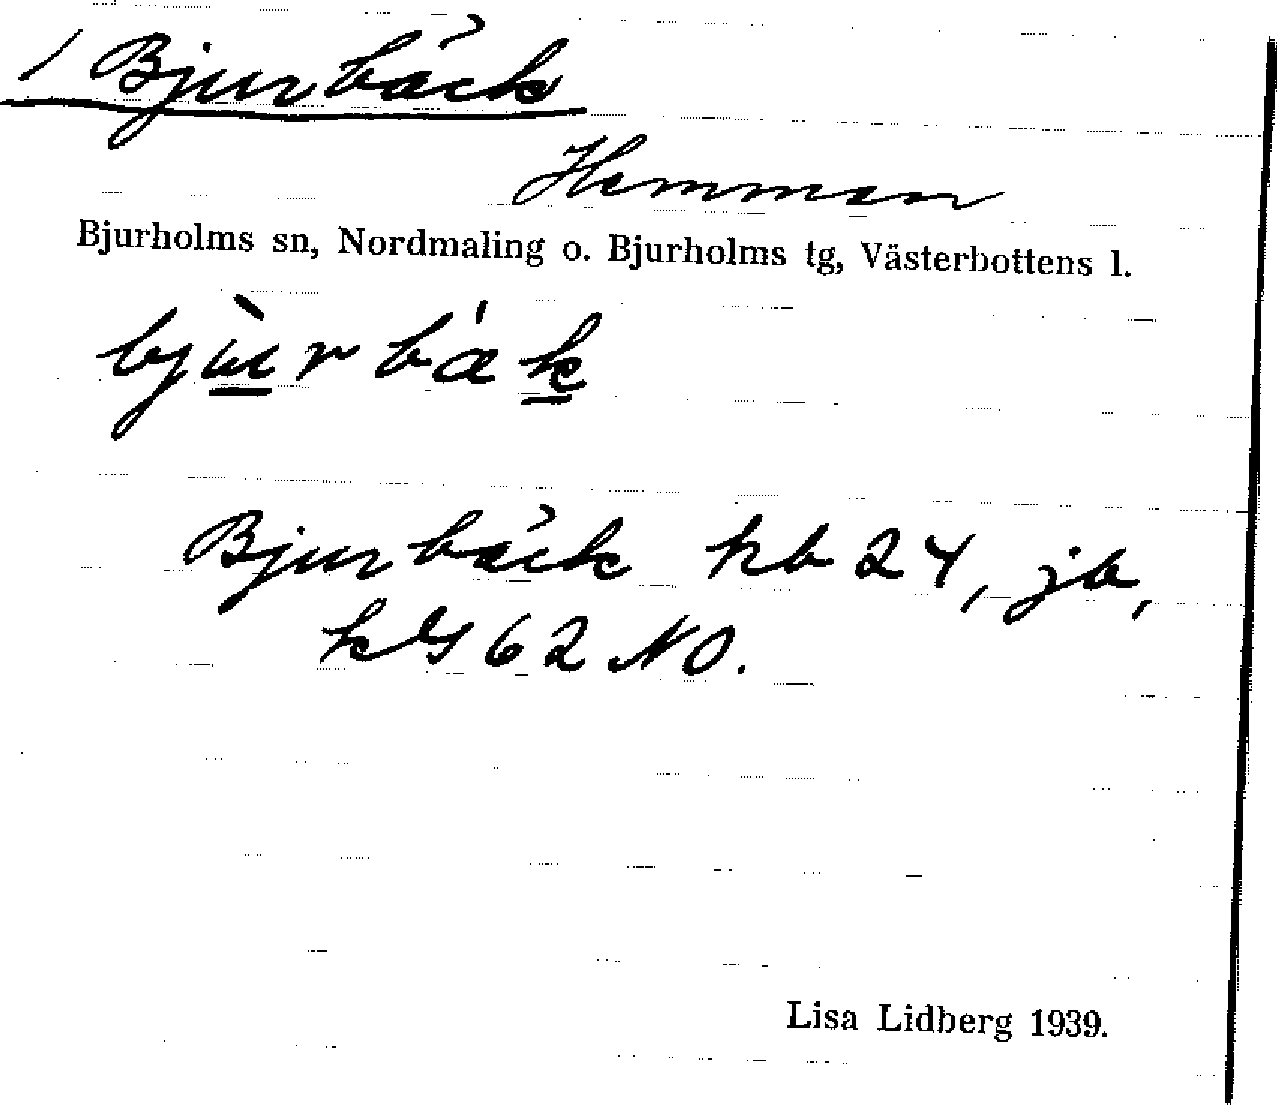 / Bjurbäck
Hemman
Bjurholms sn, Nordmaling o. Bjurholms tg, Västerbottens l.
bjùrbák
Bjurbäck hb 24, jb,
kbl 62 NO.
Lisa Lidberg 1939.